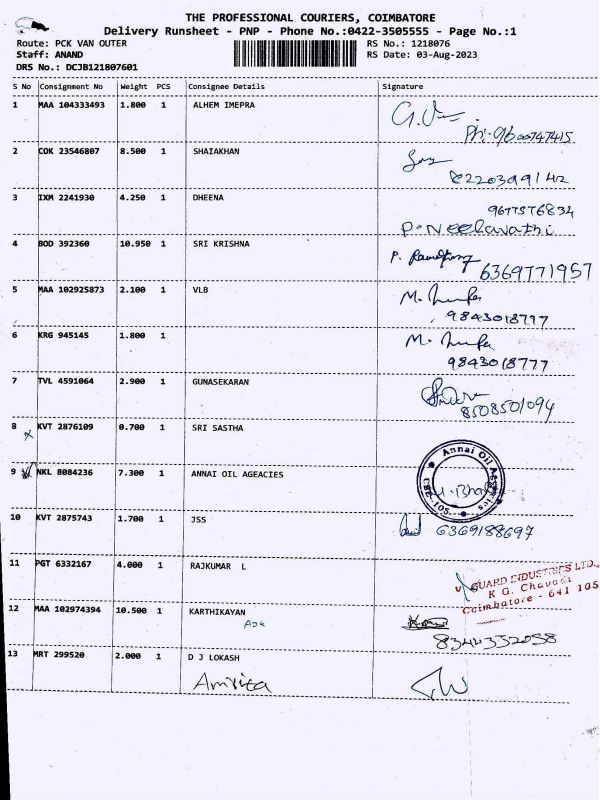 THE PROFESSIONAL COURIERS, COIMBATORE
Delivery Runsheet - PNP - Phone No.:0422-3505555 - Page No.:1
Route: PCK VAN OUTER RS No.: 1218076
Staff: ANAND RS Date: 03-Aug-2023
DRS No.: DCJB121807601
S No Consignment No Weight PCS Consignee Details Signature
1 MAA 104333493 1.800 1 ALHEM IMEPRA
Ph: 9600747415
2 COK 23546807 8.500 1 SHAIAKHAN
8220399142
3 IXM 2241930 4.250 1 DHEENA
9677576834
P. Neelavathi
4 BOD 392360 10.950 1 SRI KRISHNA P.
6369771957
5 MAA 102925873 2.100 1 VLB M.
9843018777
6 KRG 945145 1.800 1 M.
9843018777
7 TVL 4591064 2.900 1 GUNASEKARAN
8508501094
8 KVT 2876109 0.700 1 SRI SASTHA
x
Annai Oil Agencies
CBE-105
9 NKL 8084236 7.300 1 ANNAI OIL AGEACIES
10 KVT 2875743 1.700 1 JSS 6369188697
11 PGT 6332167 4.000 1 RAJKUMAR L
V GUARD INDUSTRIES LTD.,
K G. Chavadi
Coimbatore - 641 105
12 MAA 102974394 10.500 1 KARTHIKAYAN
8344332058
13 MRT 299520 2.000 1 D J LOKASH
Amirta